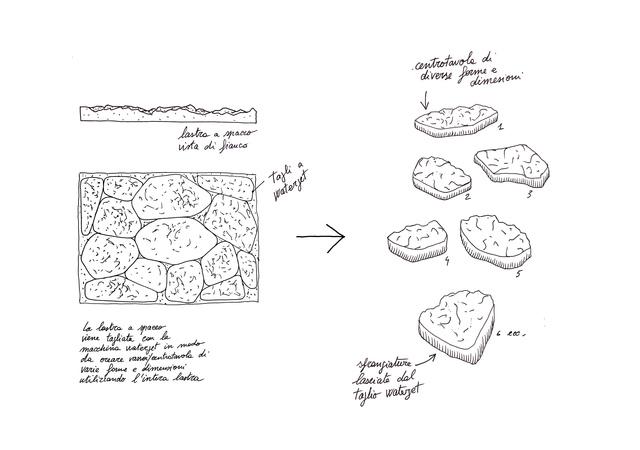 lastra a spacco
vista di fianco
tagli a
waterjet
La lastra a spacco
viene tagliata con la
macchina waterjet in modo
da creare vari/centrotavola di
varie forme e dimensioni
utilizzando l'intera lastra
centrotavola di
diverse forme e
dimesioni
1
2
3
4
5
6 ecc.
sfrangiature
lasciate dal
taglio waterjet